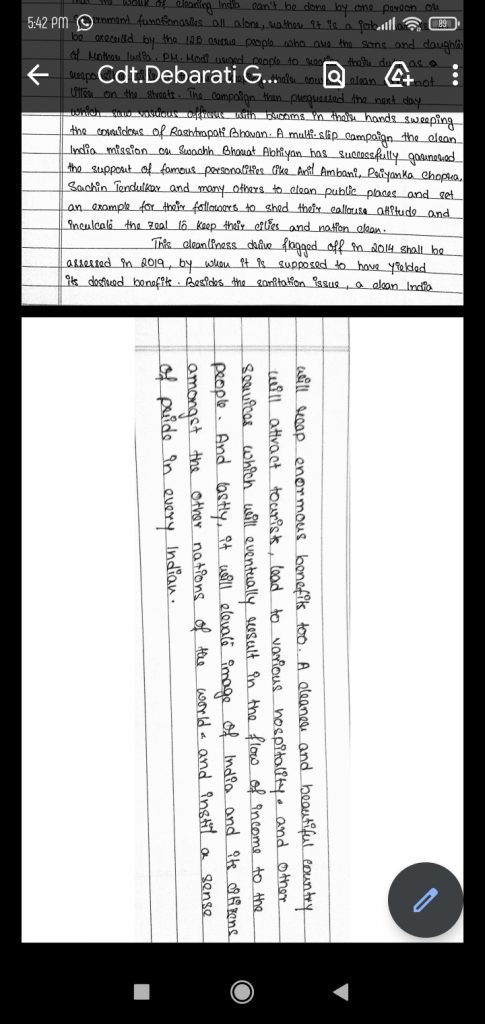 5:42 PM
89
that the work of cleaning India can't be done by one person or
government functionaries all alone, rather it is a job
be executed by the 125 crore people who are the sons and daughters
of Mother India. P.M. Modi urged people to their as a
their clean not
litter on the streets. The campaign then progressed the next day
Cdt.Debarati G...
which saw various officers with brooms in their hands sweeping
the corridors of Rashtrapati Bhavan. A multi-step campaign the clean
India mission or Swachh Bharat Abhiyan has successfully garnered
the support of famous personalities like Anil Ambani, Priyanka Chopra,
Sachin Tendulkar and many others to clean public places and set
an example for their followers to shed their callouse attitude and
inculcate the zeal to keep their cities and nation clean.
This cleanliness drive flagged off in 2014 shall be
assessed in 2019, by when it is supposed to have yielded
its desired benefits. Besides the sanitation issue, a clean India
will reap enormous benefits too. A cleaner and beautiful country
will attract tourists, lead to various hospitality and other
services which will eventually result in the flow of income to the
people. And lastly, it will elevate image of India and its citizens
amongst the other nations of the world and instil a sense
of pride in every Indian.